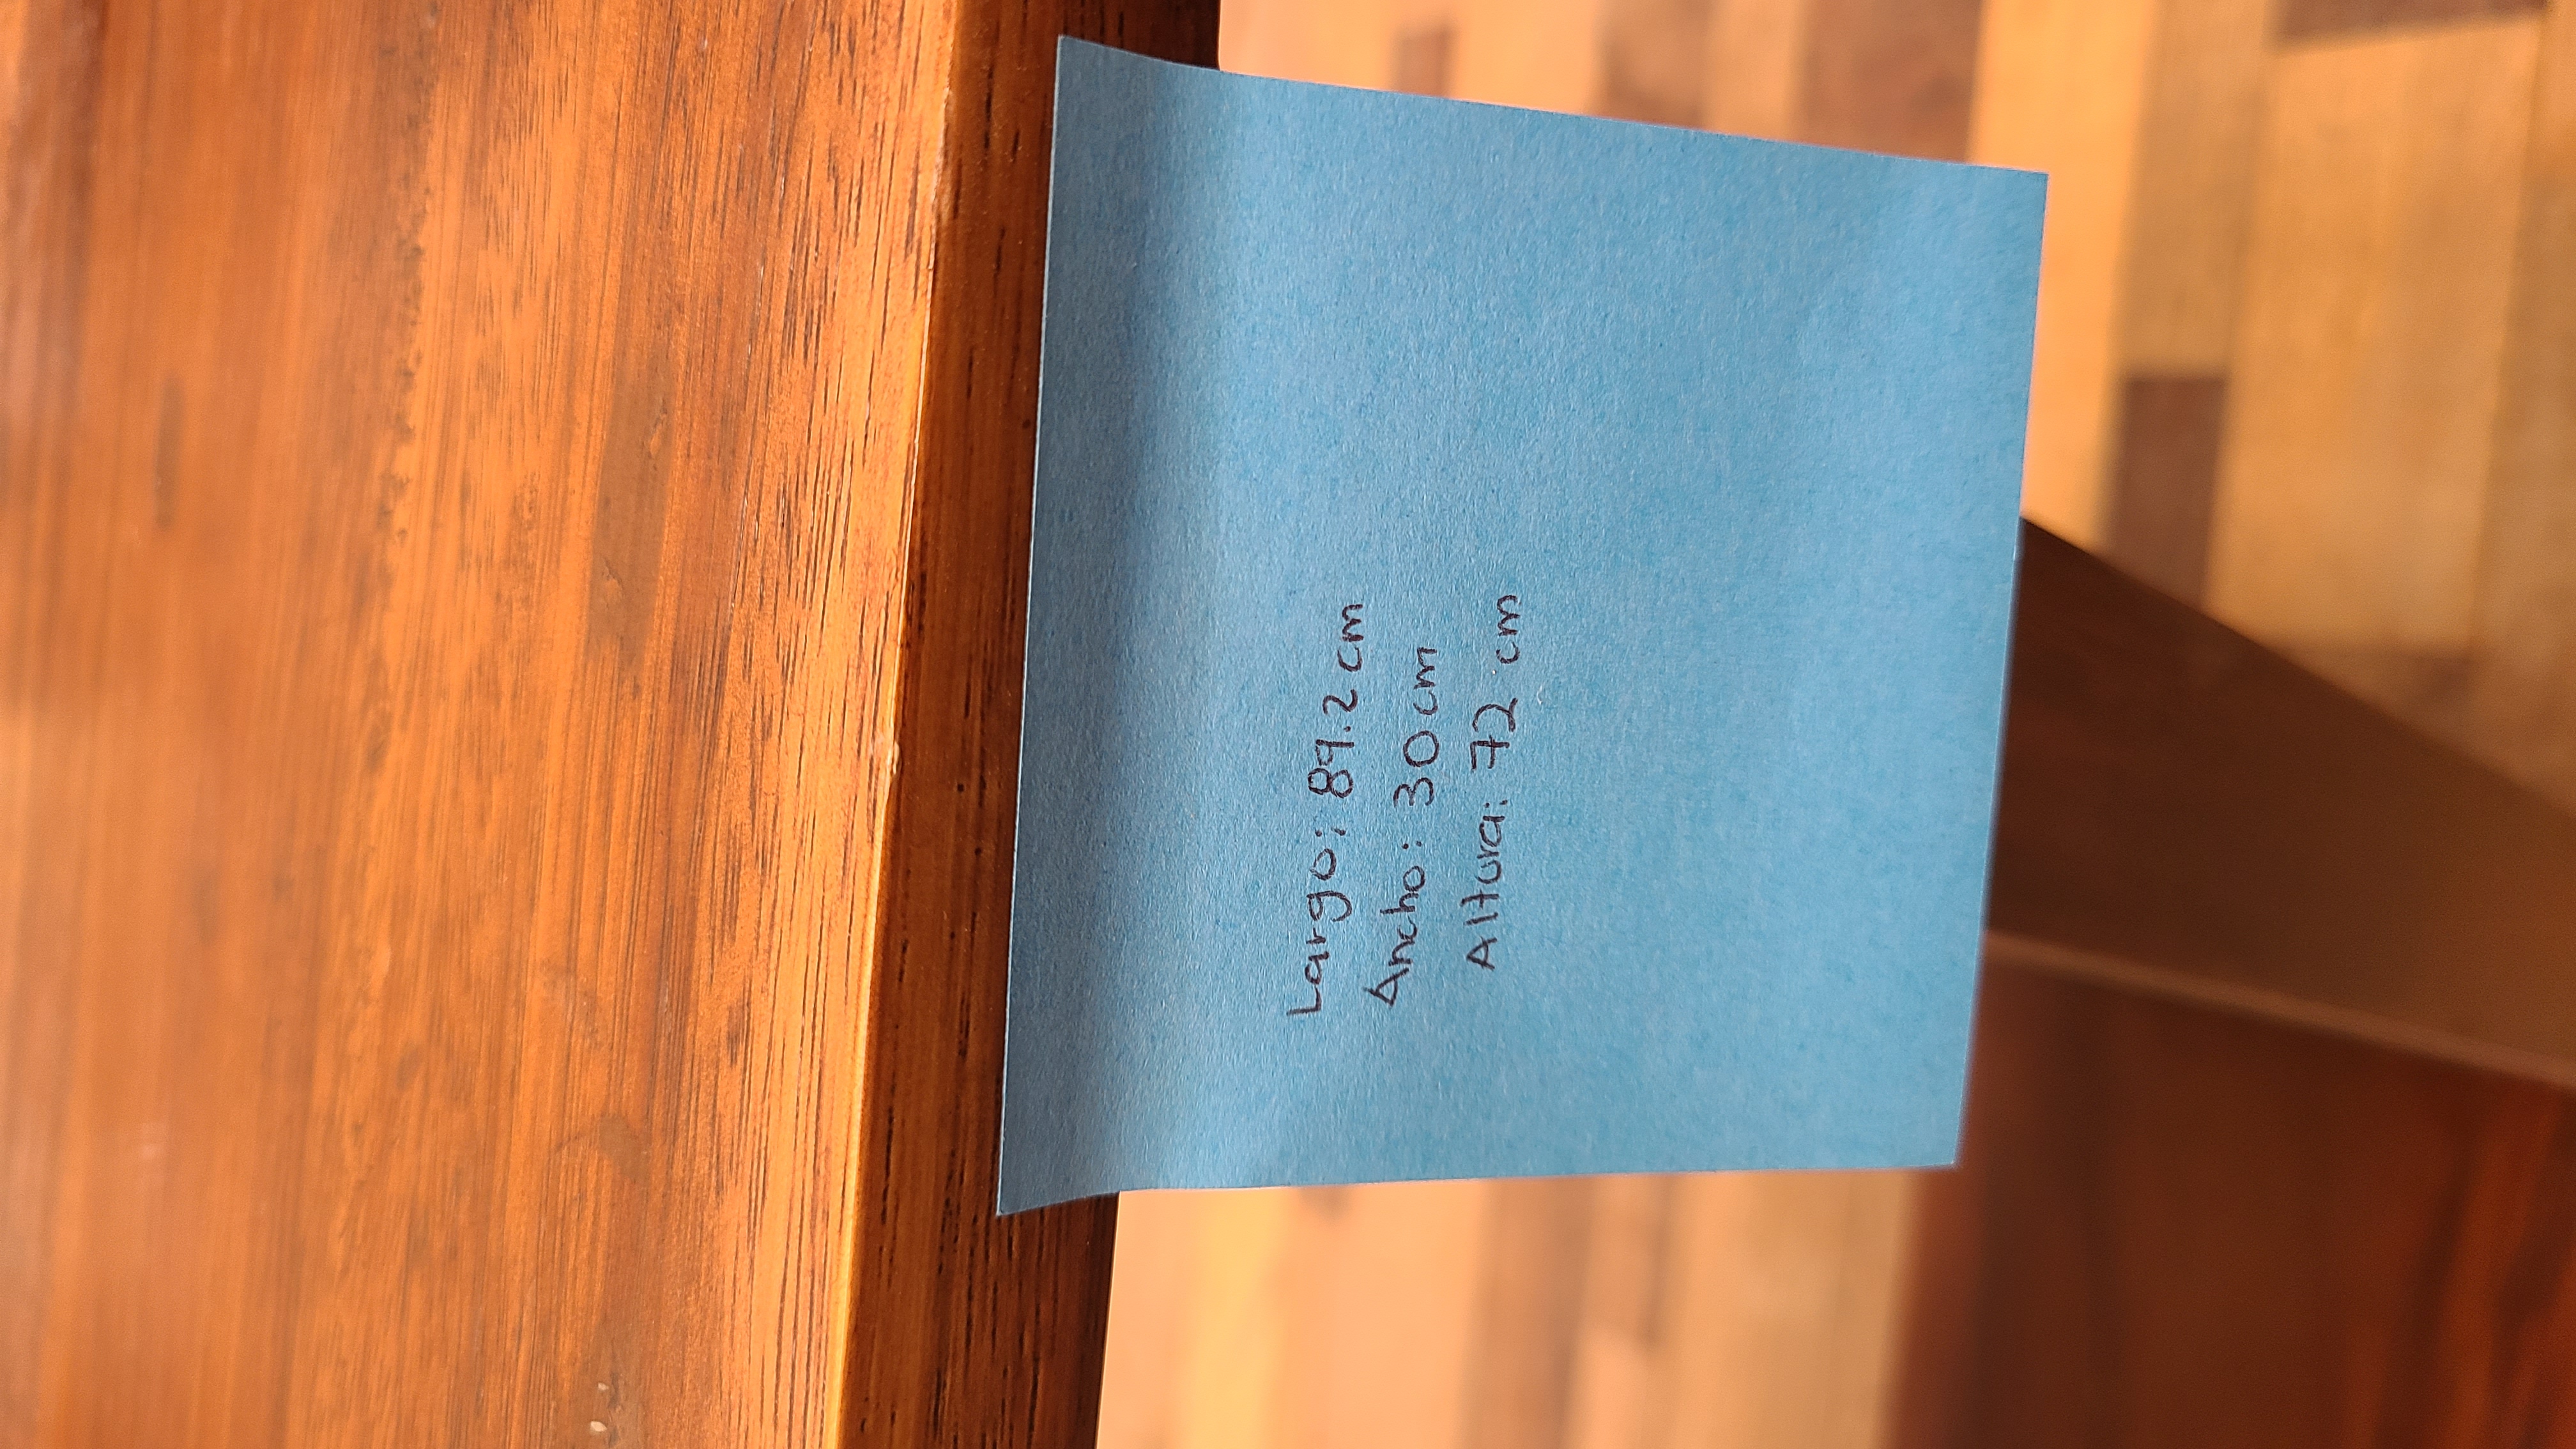 Largo: 89.2 cm
Ancho: 30 cm
Altura: 72 cm